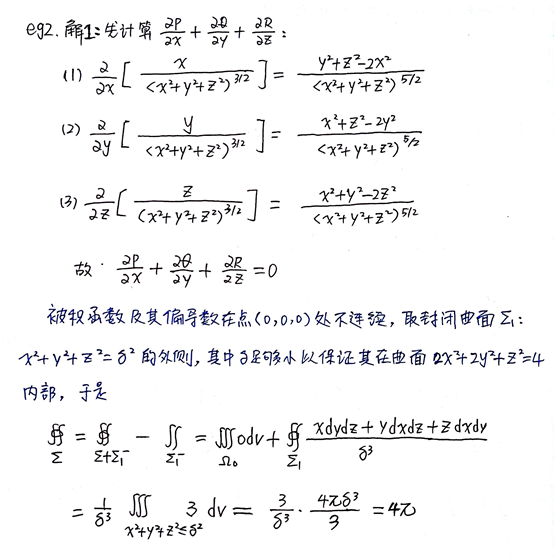 eg2. 解1: 先计算 ∂P/∂x + ∂Q/∂y + ∂R/∂z :
(1) ∂/∂x [ x/(x²+y²+z²)^{3/2} ] = (y²+z²-2x²)/(x²+y²+z²)^{5/2}
(2) ∂/∂y [ y/(x²+y²+z²)^{3/2} ] = (x²+z²-2y²)/(x²+y²+z²)^{5/2}
(3) ∂/∂z [ z/(x²+y²+z²)^{3/2} ] = (x²+y²-2z²)/(x²+y²+z²)^{5/2}
故 · ∂P/∂x + ∂Q/∂y + ∂R/∂z = 0
被积函数及其偏导数在点(0,0,0)处不连续, 取封闭曲面Σ₁:
x²+y²+z²=δ² 的外侧, 其中δ足够小以保证其在曲面 2x²+2y²+z²=4
内部, 于是
∯_Σ = ∯_{Σ+Σ₁⁻} - ∬_{Σ₁⁻} = ∭_{Ω₀} 0dv + ∯_{Σ₁} (xdydz+ydxdz+zdxdy)/δ³
= 1/δ³ ∭_{x²+y²+z²≤δ²} 3 dv = 3/δ³ · 4πδ³/3 = 4π